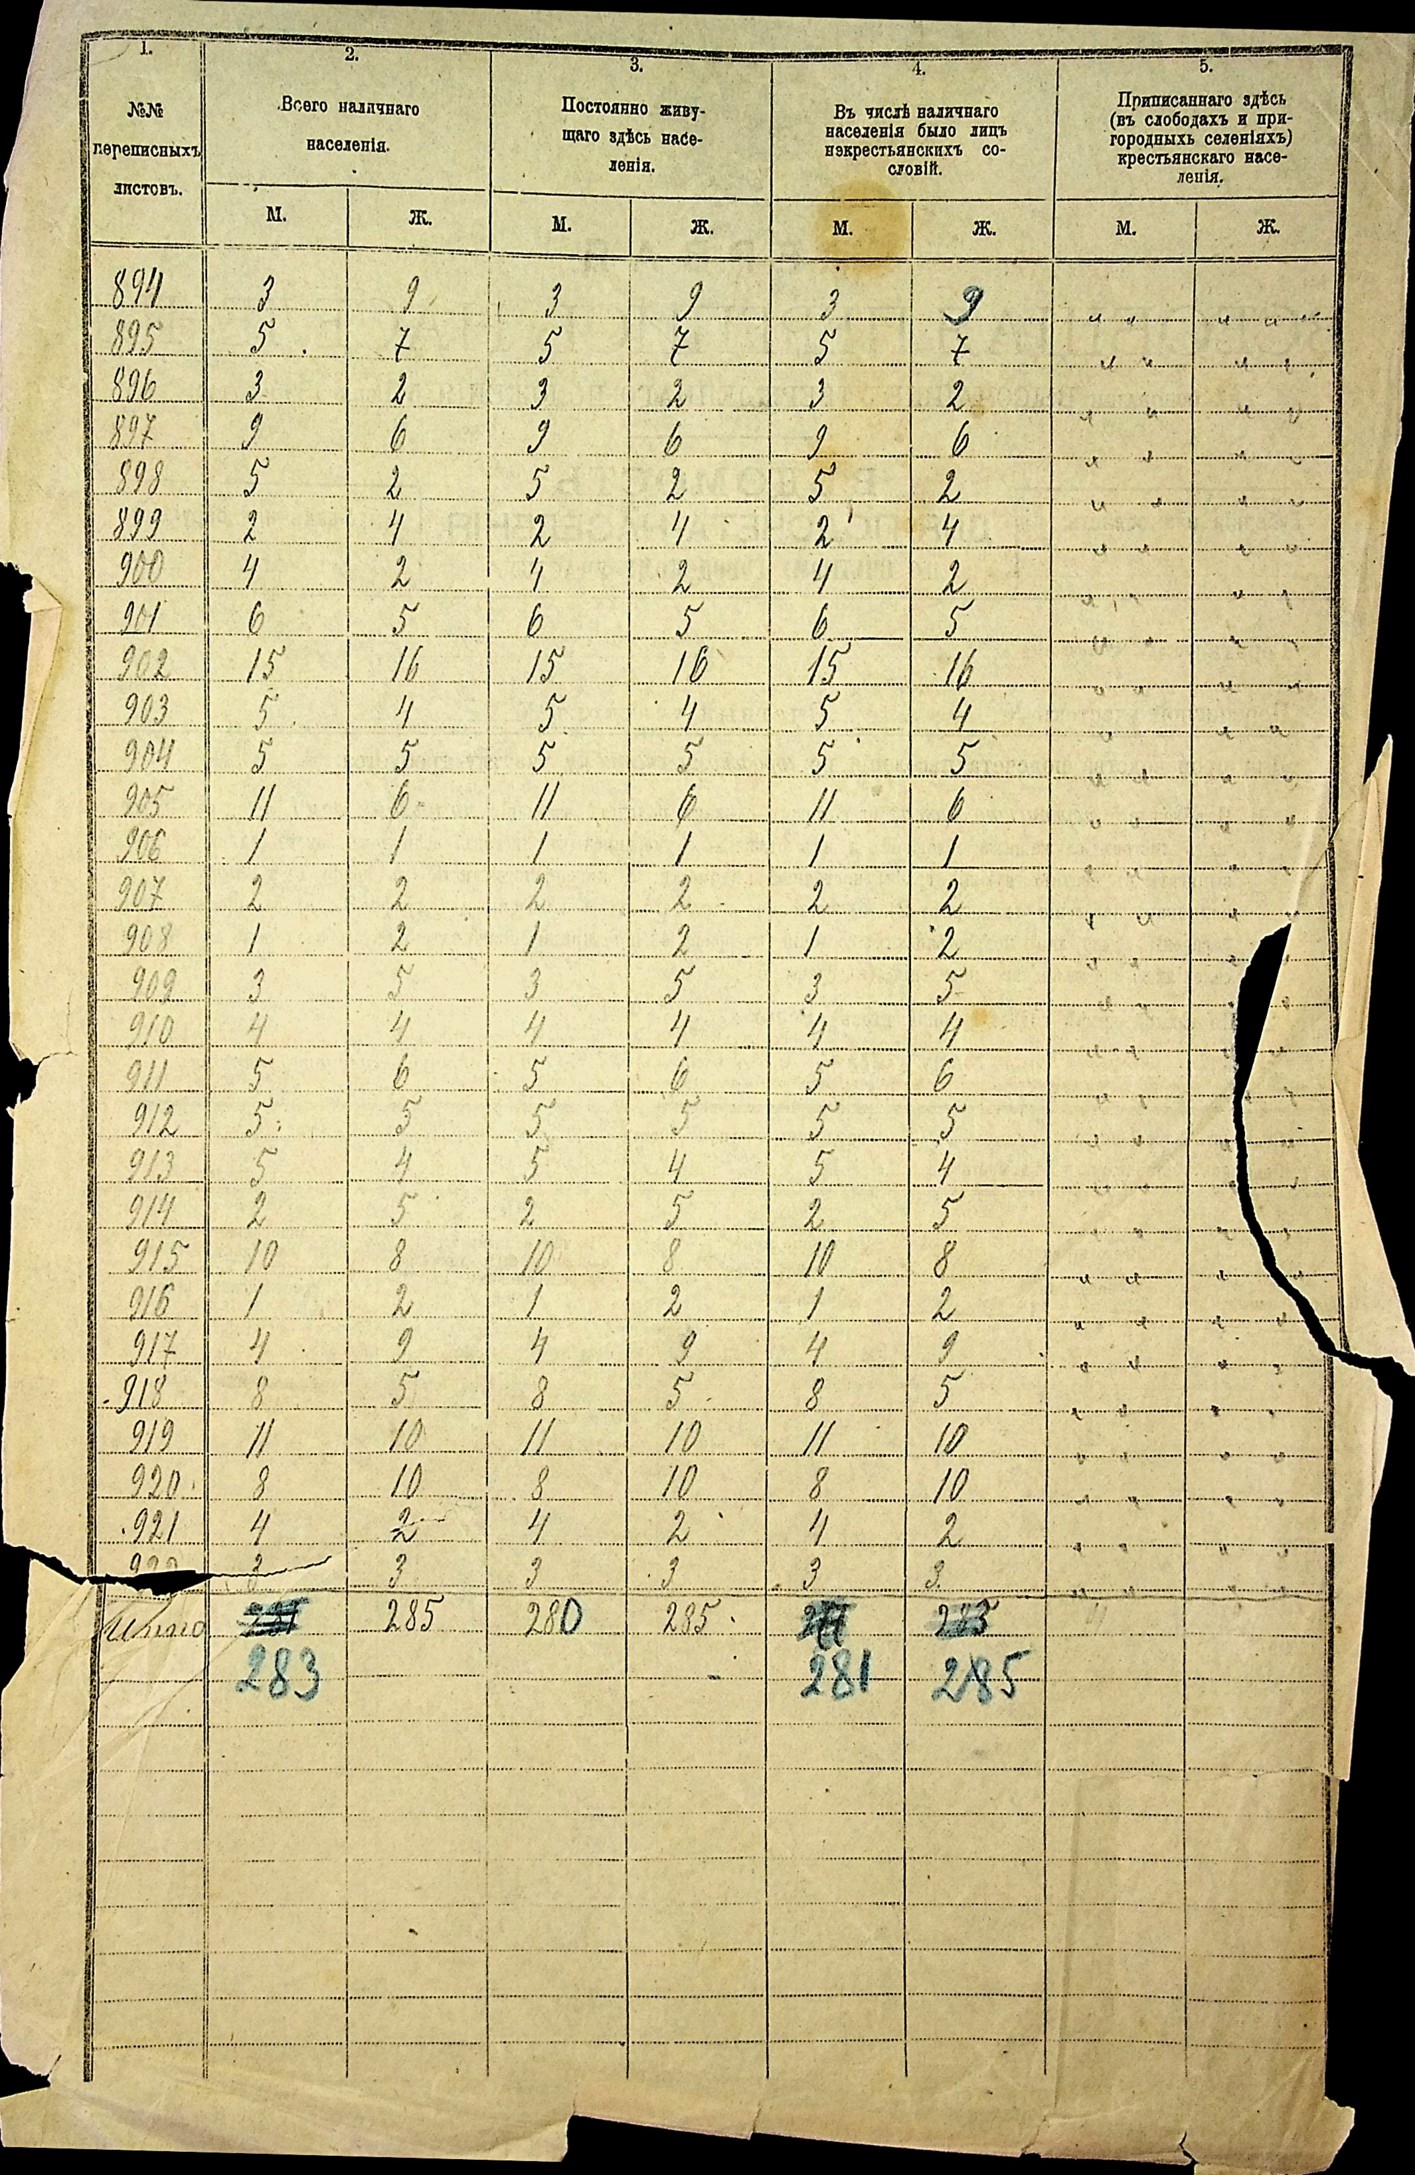 1. 2. 3. 4. 5.
№№ переписныхъ листовъ. Всего наличнаго населенія. Постоянно живущаго здѣсь населенія. Въ числѣ наличнаго населенія было лицъ нэкрестьянскихъ сословій. Приписаннаго здѣсь (въ слободахъ и пригородныхъ селеніяхъ) крестьянскаго населенія.
М. Ж. М. Ж. М. Ж. М. Ж.
894 3 9 3 9 3 9 " " " "
895 5 7 5 7 5 7 " " " "
896 3 2 3 2 3 2 " " " "
897 9 6 9 6 9 6 " " " "
898 5 2 5 2 5 2 " " " "
899 2 4 2 4 2 4 " " " "
900 4 2 4 2 4 2 " " " "
901 6 5 6 5 6 5 " " " "
902 15 16 15 16 15 16 " " " "
903 5 4 5 4 5 4 " " "
904 5 5 5 5 5 5 " " " "
905 11 6 11 6 11 6 " " " "
906 1 1 1 1 1 1 " " " "
907 2 2 2 2 2 2 " " " "
908 1 2 1 2 1 2 " " " "
909 3 5 3 5 3 5 " " " "
910 4 4 4 4 4 4 " " " "
911 5 6 5 6 5 6 " " " "
912 5 5 5 5 5 5 " " " "
913 5 4 5 4 5 4 " " " "
914 2 5 2 5 2 5 " " " "
915 10 8 10 8 10 8 " " " "
916 1 2 1 2 1 2 " " " "
917 4 9 4 9 4 9 " " " "
918 8 5 8 5 8 5 " " " "
919 11 10 11 10 11 10 " " " "
920 8 10 8 10 8 10 " " " "
921 4 2 4 2 4 2 " " " "
922 3 3 3 3 3 3 " " " "
Итого 285 280 285
283 281 285